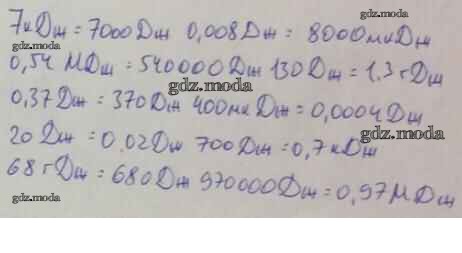 gdz.moda
7кДж = 7000Дж 0,008Дж = 8000мкДж
0,54 МДж = 540000Дж 130Дж = 1,3гДж
gdz.moda
0,37Дж = 370Дж 400мкДж = 0,0004Дж
gdz.moda gdz.moda
20Дж = 0,02Дж 700Дж = 0,7кДж
68гДж = 680Дж 970000Дж = 0,97МДж
gdz.moda gdz.moda